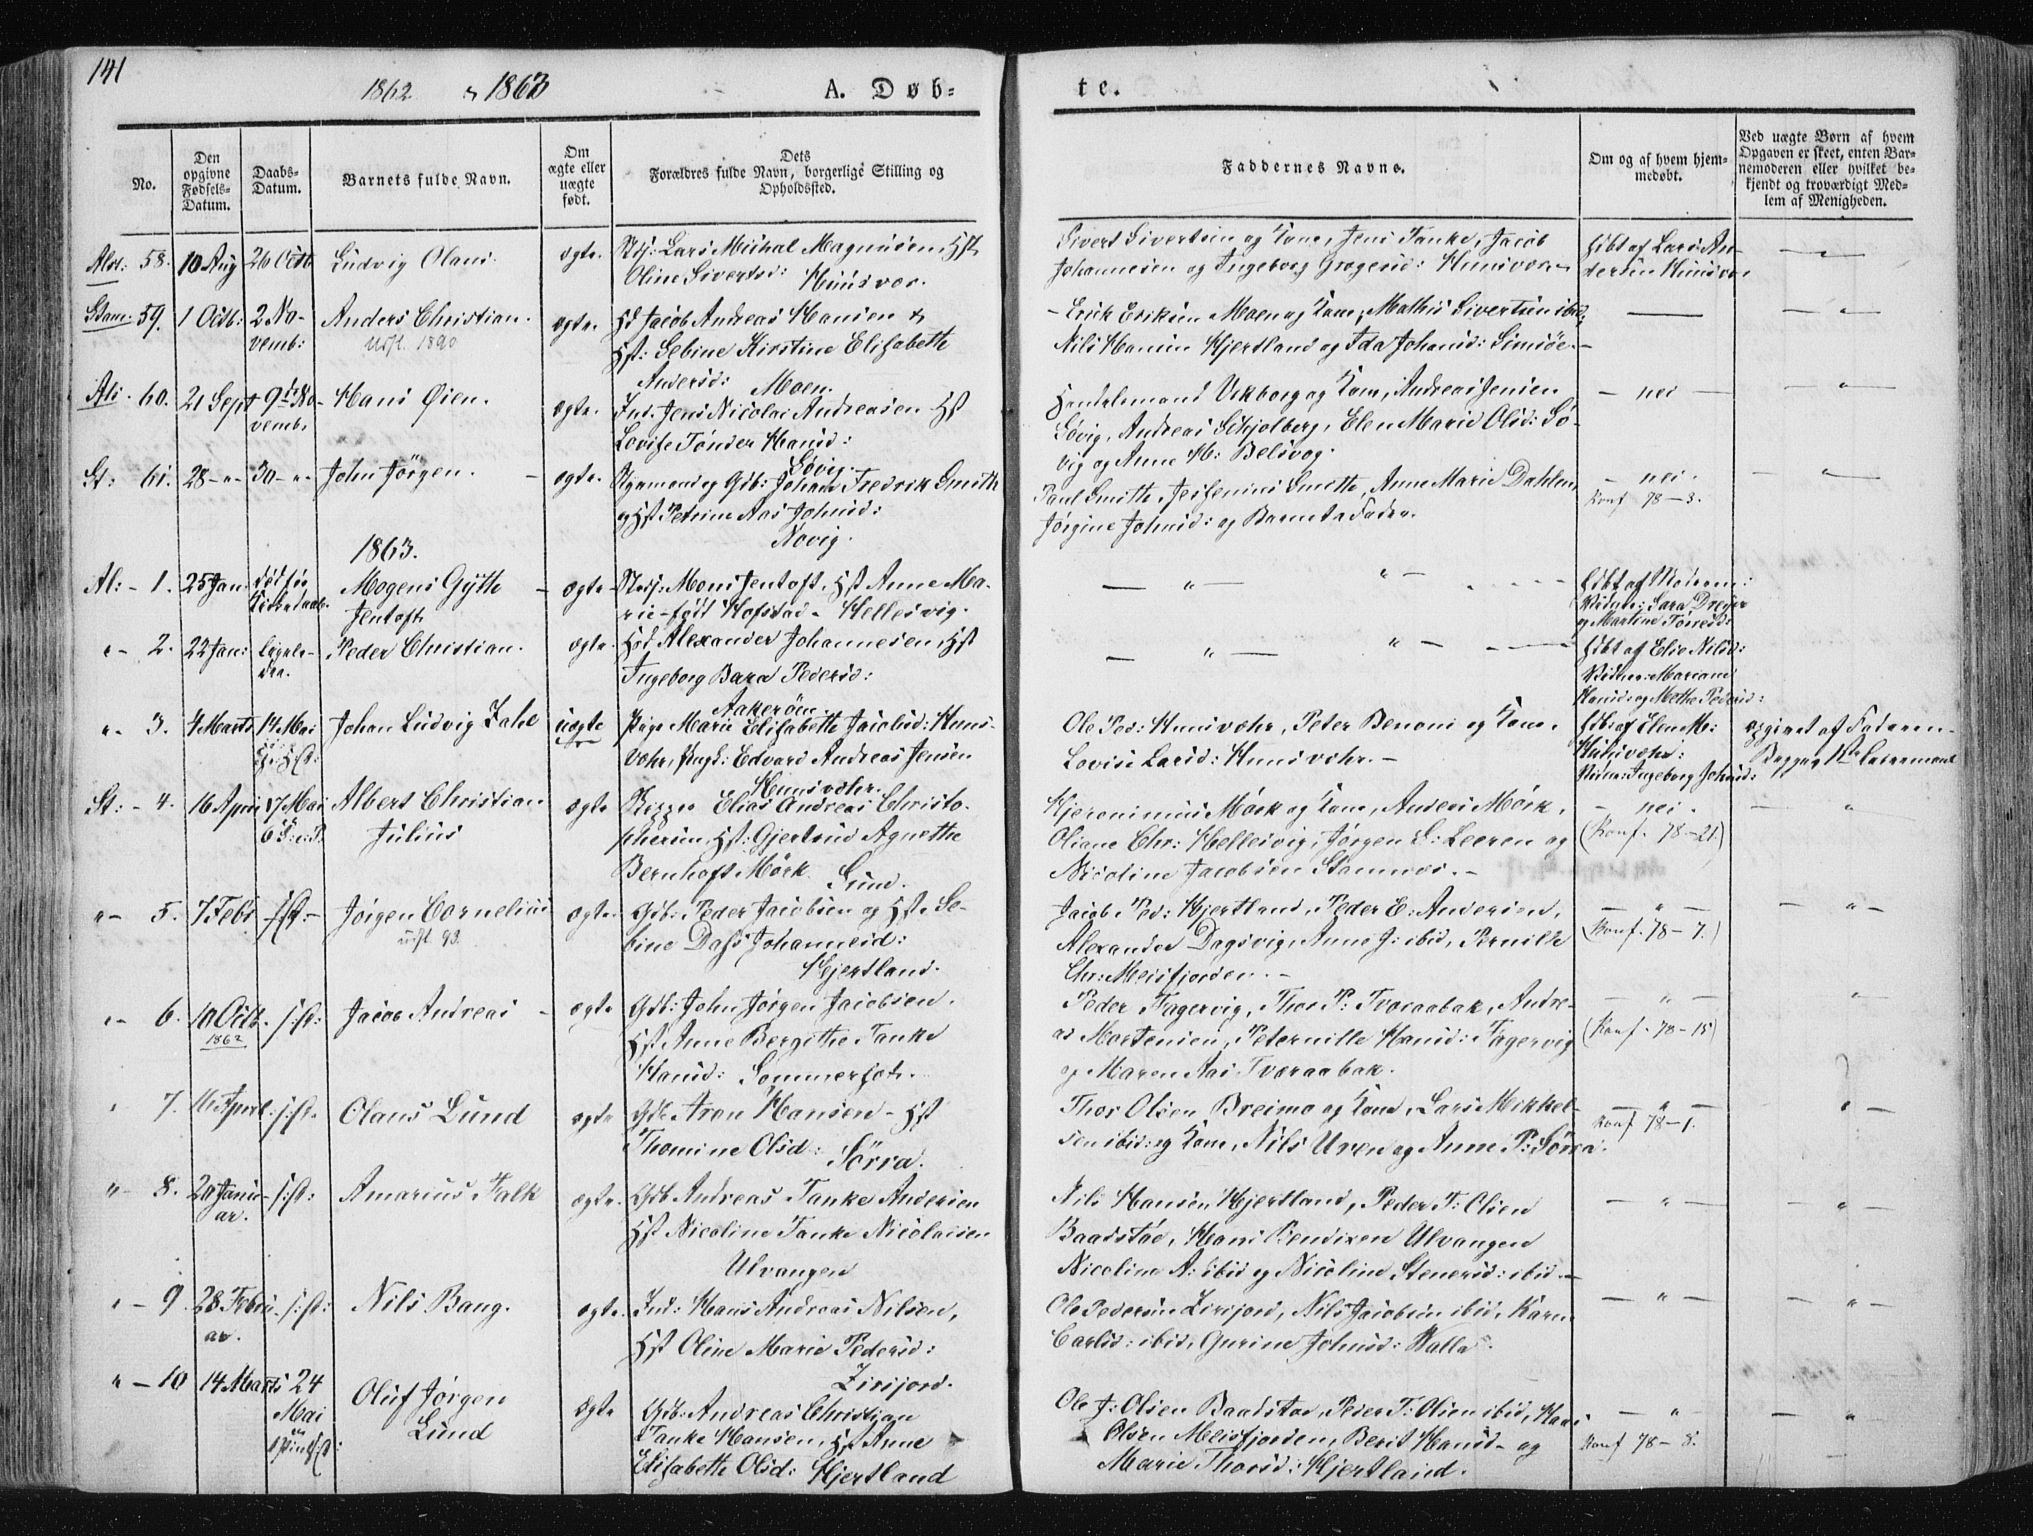 141
1862 & 1863
A. Døb=
te.
No.
Den opgivne Fødsels-Datum.
Daabs-Datum.
Barnets fulde Navn.
Om ægte eller uægte født.
Dets
Forældres fulde Navn, borgerlige Stilling og
Opholdssted.
Faddernes Navne.
Om og af hvem hjem-
medøbt.
Ved uægte Børn af hvem
Opgaven er skeet, enten Bar-
nemoderen eller hvilket be-
kjendt og troværdigt Med-
lem af Menigheden.
58. 10 Aug 26 Octb Ludvig Olaus. ægte. Lars Michal Magnusen, Hst
Oline Sivertsd: Huusvær.
Sivert Sivertsen og Kone, Jens Tanke, Jacob
Johannesen og Ingeborg Huusvær
Hdbt af Lars An-
dersen Huusvær
Stam. 59. 1 Octb: 2 No-
vemb:
Anders Christian.
udfl. 1890
ægte. Jacob Andreas Hansen &
Hst: Sebine Kirstine Elisabeth
Andersd: Moen.
Erick Eriksen Moen og Kone, Mathis Sivertsen ibid,
Nils Hansen Hjertland og Ida Johansd: Simsøe.
60. 21 Sept 9de No-
vemb.
Hans Øien. ægte. Ind. Jens Nicolai Andreasen Hst
Lovise Tønder Hansd:
Søvig.
Handelsmand Vikborg og Kone, Andreas Jensen
Søvig, Andreas Schjelberg, Elen Marie Olsd: Sø-
vig og Anne M: Belsvog.
nei
St: 61. 28 - " - 30 - " - John Jörgen. ægte. Gdb: Johan Fredrik Smith
og Hst Petrine Aas Johnsd:
Røvig.
Paul Smith, Smith, Anne Marie Dahlen,
Jørgine Johnsd: og Barnets Fader.
nei.
Konf 78-3.
1863.
Al: - 1. 25 Jan: død før
Mogens Gythe
Jentoft
ægte Mons Jentoft, Hst Anne Ma-
rie född Hofstad - Hellesvig.
Hdbt af Moderen:
Vidner: Sara Dreyer
og Martine
" - 2. 22 Jan: ligele-
des.
Peder Christian. ægte. Alexander Johannesen, Hst
Ingeborg Bara Pedersd:
Aakerøen.
Hdbt af Elie Nilsd:
Vidner: Mariane
Hansd: og Methe Pedersd:
" - 3. 4 Marts 14 Mai
Johan Ludvig Zahl uægte Pige Marie Elisabeth Jacobsd: Huus-
vær, Ungk: Edvard Andreas Jensen
Huusvæhr.
Ole Ped: Huusvæhr, Peter Benoni og Kone,
Lovise Larsd: Huusvæhr. -
Hdbt af Elen M:
Huusvæhr:
Vidne: Ingeborg Johnsd:
opgivet af Faderen
Begge
St: - 4. 16 April 17 Mai
Albert Christian
Julius
ægte Elias Andreas Christo-
phersen, Hst: Gjertrud Agnethe
Bernhoft Mörk. Sund.
Hjeronimus Mörk og Kone, Anders Mörk,
Oliane Chr: Hellesvig, Jørgen S: Leeren og
Nicoline Jacobsen Stamnæs. -
nei.
(Konf. 78-21.)
" - 5. 7 Feb: s: st: Jörgen Cornelius
udfl. 93.
ægte Gdb: Peder Jacobsen og Hst Se-
bine Dass Johannesd:
Hjertland.
Jacob Ped: Hjertland, Peder E: Andersen,
Alexander Dagsvig, Anne J: ibid, Pernille
Chr: Meisfjorden. -
(Konf. 78-7.)
" - 6. 10 Octb.
1862
s: st: Jacob Andreas ægte Gdb: John Jørgen Jacobsen.
Hst Anne Bergithe Tanke
Hansd: Sommersæt.
Peder Fagervig, Thor P: Tveraabak, Andre-
as Mortensen, Peternille Hansd: Fagervig
og Maren Aas Tveraabak.
(Konf. 78-15)
" 7. 16 April. s: st. Olaus Lund ægte Gdb Aron Hansen - Hst
Thomine Olsd: Sörra.
Thor Olsen Breimo og Kone, Lars Mikkel-
sen ibid: og Kone, Nils Uren og Anne P: Sörra.
Konf 78-1.
" - 8. 20 Janu-
ar.
s: st: Amarius Falk ægte. Gdb Andreas Tanke Andersen
Hst Nicoline Tanke Nicolaisen
Ulvangen
Nils Hansen Hjertland, Peder T: Olsen
Baadstøe, Hans Bendixen Ulvangen
Nicoline A: ibid og Nicoline Stenersd: ibid. -
" - 9. 28 Febru-
ar.
s: st: Nils Bang. ægte. Ind: Hans Andreas Nilsen,
Hst Oline Marie Pedersd:
Zirifjord.
Ole Pedersen Zirifjord, Nils Jacobsen ibid, Karen
Carlsd: ibid, Gurine Johnsd: Walla.
" - 10 14 Marts 24
Mai
Oluf Jørgen
Lund
ægte Gdb: Andreas Christian
Tanke Hansen, Hst Anne
Elisabeth Olsd: Hjertland
Ole J: Olsen Baadstøe, Peder T: Olsen ibid, Hans
Olsen Meisfjorden, Berit Hansd - og
Marie Thorsd: Hjertland.
Konf 78-8.